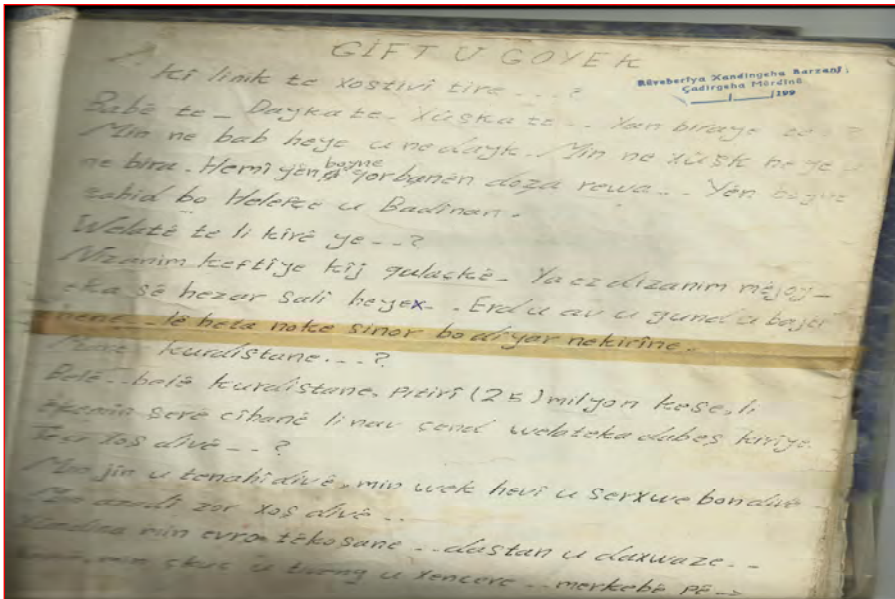 GİFT U GOYEK
Rêveberîya Xandingeha Barzanî
Çadirgeha Mêrdînê
199
Kî linik te xoştivî tire...?
Babê te - Dayka te - Xûşka te.. Yan biraye te..?
Min ne bab heye u ne dayk. Min ne xûşk heye u
ne bira. Hemî yên boyne qorbanên doza rewa... Yên boyne
şahid bo Helebce u Badînan.
Welatê te li kîrê ye...?
Nizanim keftîye kîj qulaçkê - Ya ez dizanim mêjoy-
eka sê hezar salî heyex.. Erd u av u gund u bajêr
hene... lê heta noke sînor bo diyar nekirîne.
kurdistane...?
Belê.. belê kurdistane. Pitirî (25) milyon kese, li
serê cîhanê li nav çend welateka dabeş kirîye.
xoş divê...?
Min jîn u tenahî divê, min wek hevî u serxwebon divê
Min azadî zor xoş divê..
min evro têkoşane.. dastan u daxwaze..
min çkuç u tiveng u xencere.. merkebê pê →